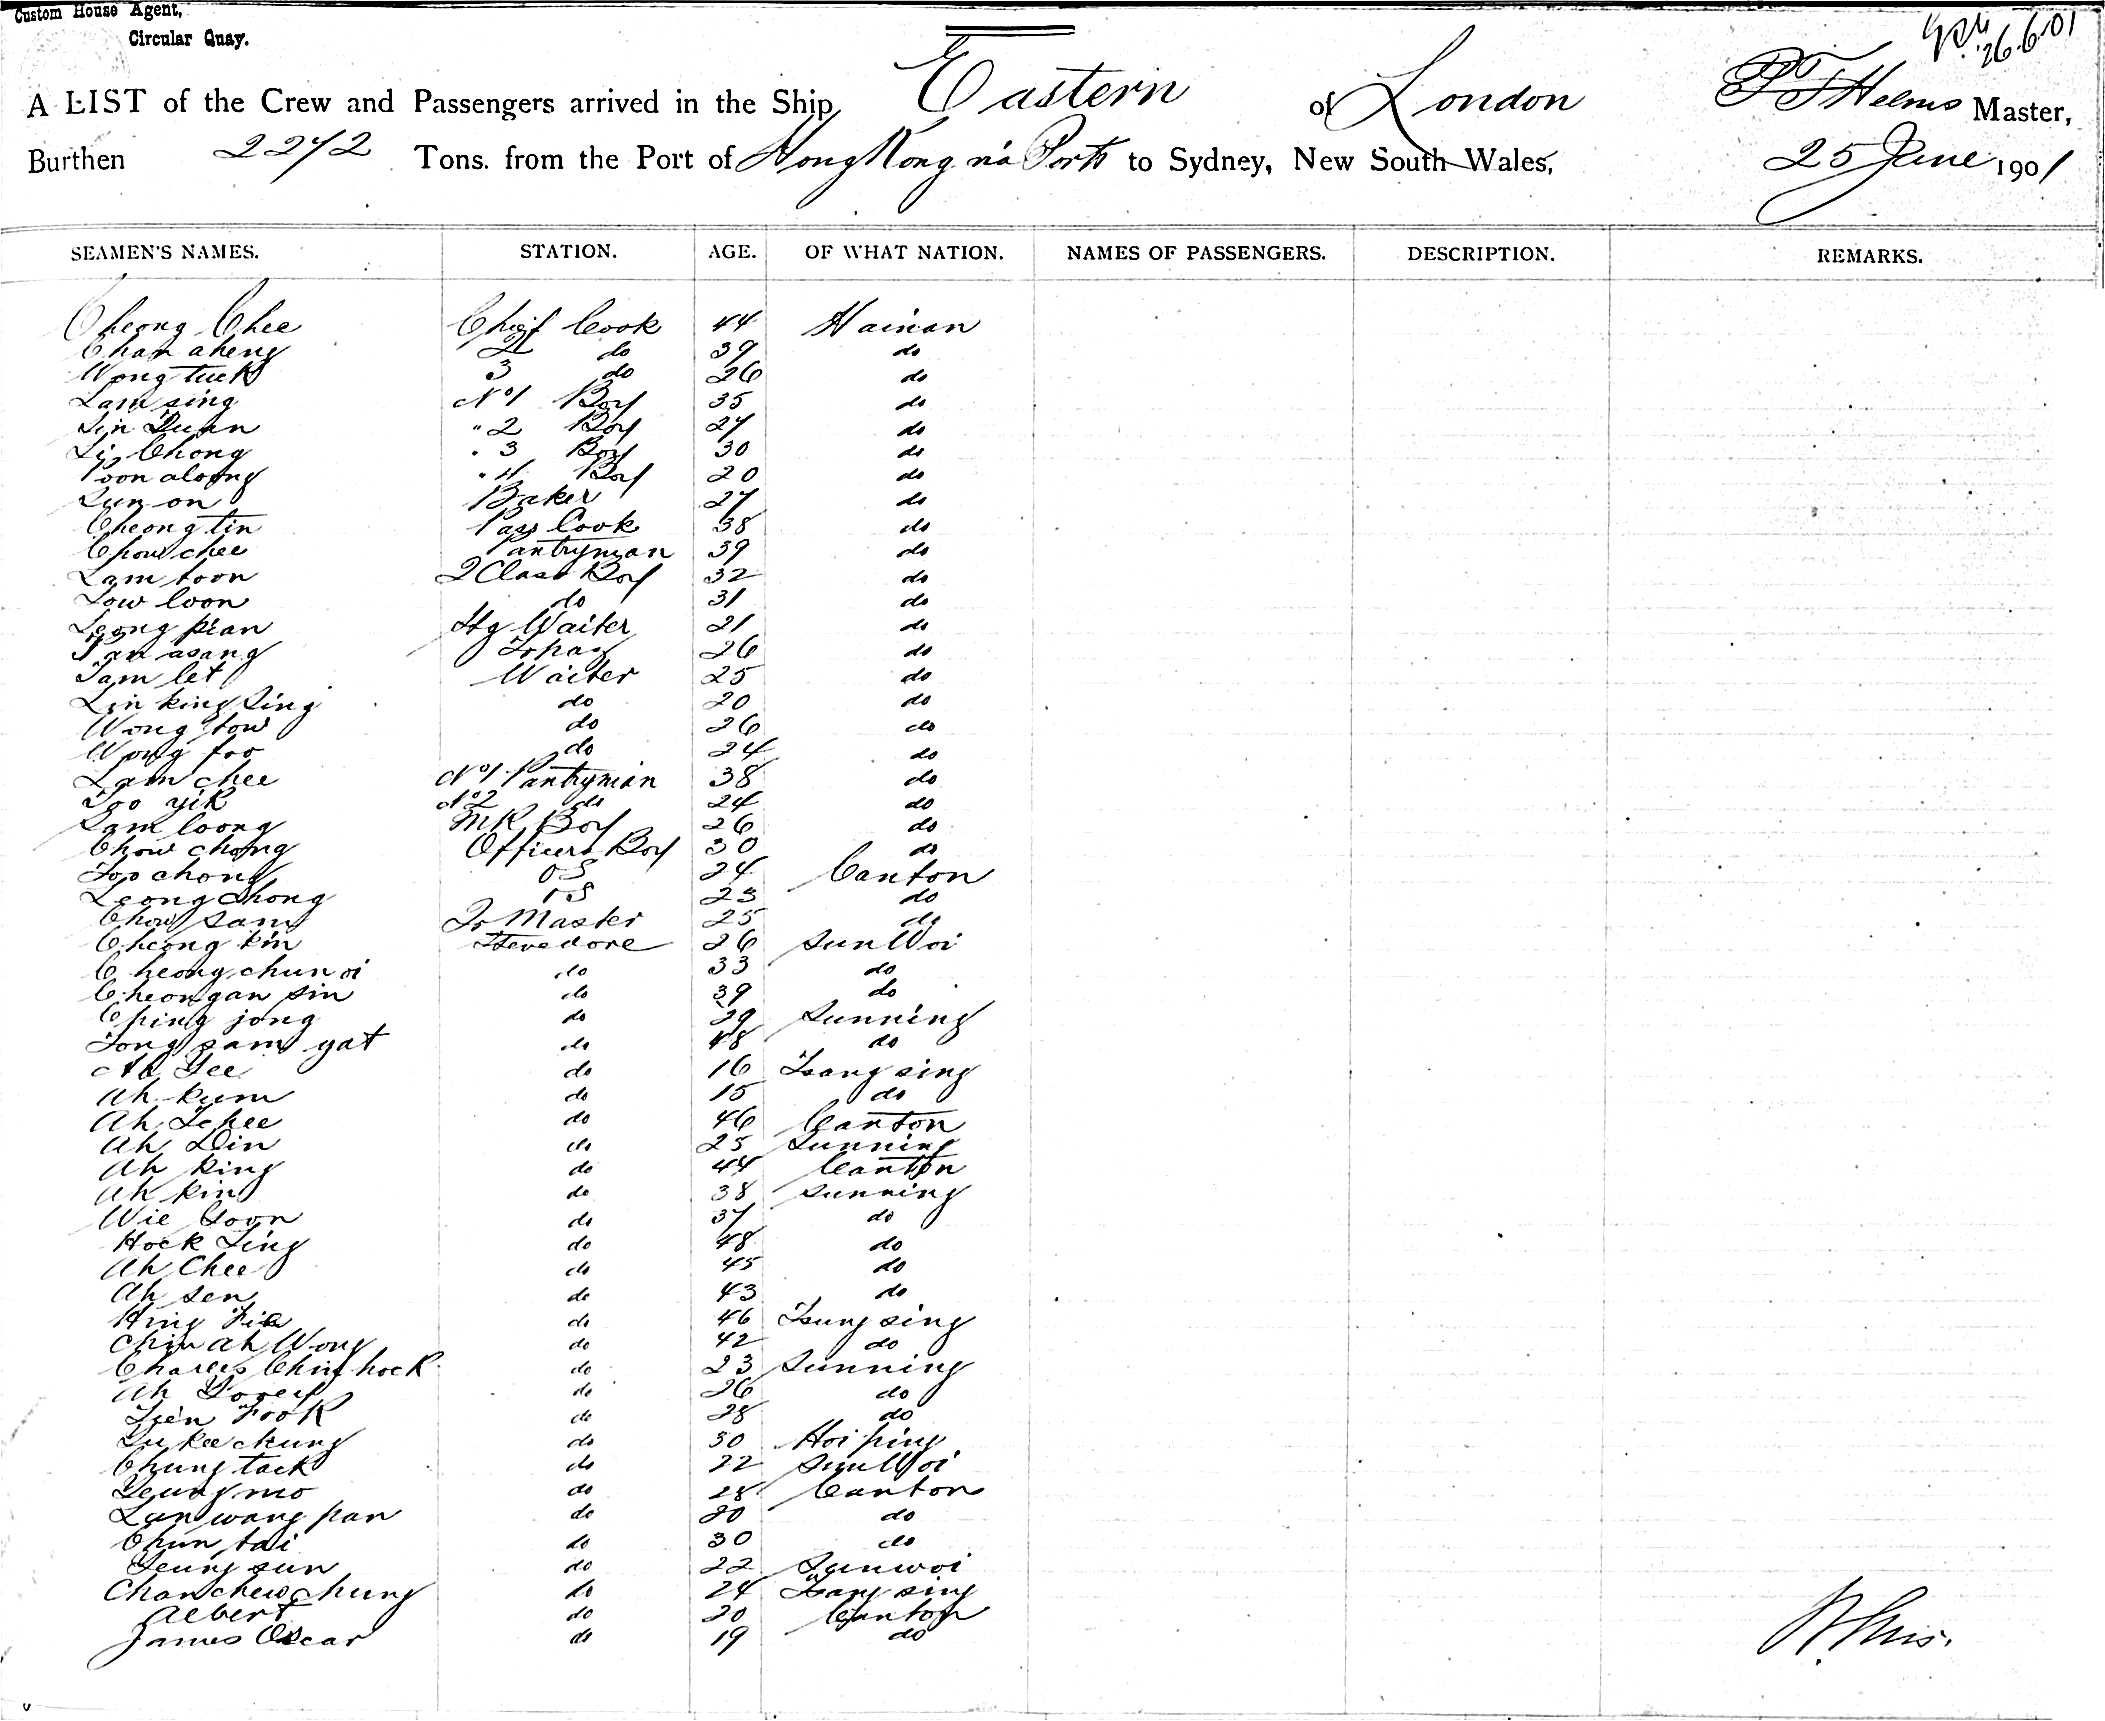 Custom House Agent,
Circular Quay.
26.6.01
A LIST of the Crew and Passengers arrived in the Ship Eastern of London P T Helms Master,
Burthen 2272 Tons. from the Port of Hong Kong via Ports to Sydney, New South Wales, 25 June 1901
SEAMEN'S NAMES. STATION. AGE. OF WHAT NATION. NAMES OF PASSENGERS. DESCRIPTION. REMARKS.
Cheong Chee Chief Cook 44 Hainan
Chan aheng 2 do 39 do
Wong tuck 3 do 26 do
Lam sing No 1 Boy 35 do
Lin Quan " 2 Boy 27 do
Li Chong " 3 Boy 30 do
Poon aloong " 4 Boy 20 do
Lun on Baker 27 do
Cheong tin Pass Cook 38 do
Chow chee Pantryman 39 do
Lam toon 2 Class Boy 32 do
Low loon do 31 do
Leong pian Stg Waiter 21 do
Pan asang Topas 26 do
Tam let Waiter 25 do
Lin king Sing do 20 do
Wong tow do 26 do
Wong foo do 24 do
Lam chee No 1 Pantryman 38 do
Too yik No 2 do 24 do
Lam loong MR Boy 26 do
Chow chong Officers Boy 30 do
Fop chong OS 24 Canton
Leong chong OS 23 do
Chow sam To Master 25 do
Cheong kin Stevedore 26 Sun Woi
Cheong chun oi do 33 do
Cheongan sin do 39 do
Ching jong do 29 Sunning
Tong sam yat do 48 do
Ah Yee do 16 Tsang sing
Ah kum do 15 do
Ah Tchee do 46 Canton
Ah Din do 25 Sunning
Ah king do 44 Canton
Ah kin do 38 Sunning
Wie Goon do 37 do
Hock Ting do 48 do
Ah Chee do 45 do
Ah sen do 43 do
Hing Fie do 46 Tsung sing
Chin ah Wong do 42 do
Charles Chin hock do 23 Sunning
Ah do 26 do
Lien Fook do 28 do
Lu kee chung do 50 Hoi ping
Chung tack do 22 Sun Woi
Yeung mo do 28 Canton
Lun wang pan do 20 do
Chun tai do 30 do
Yeung sun do 22 Sunwoi
Chan chew chung do 24 Tsang sing
Albert do 20 Canton
James Oscar do 19 do